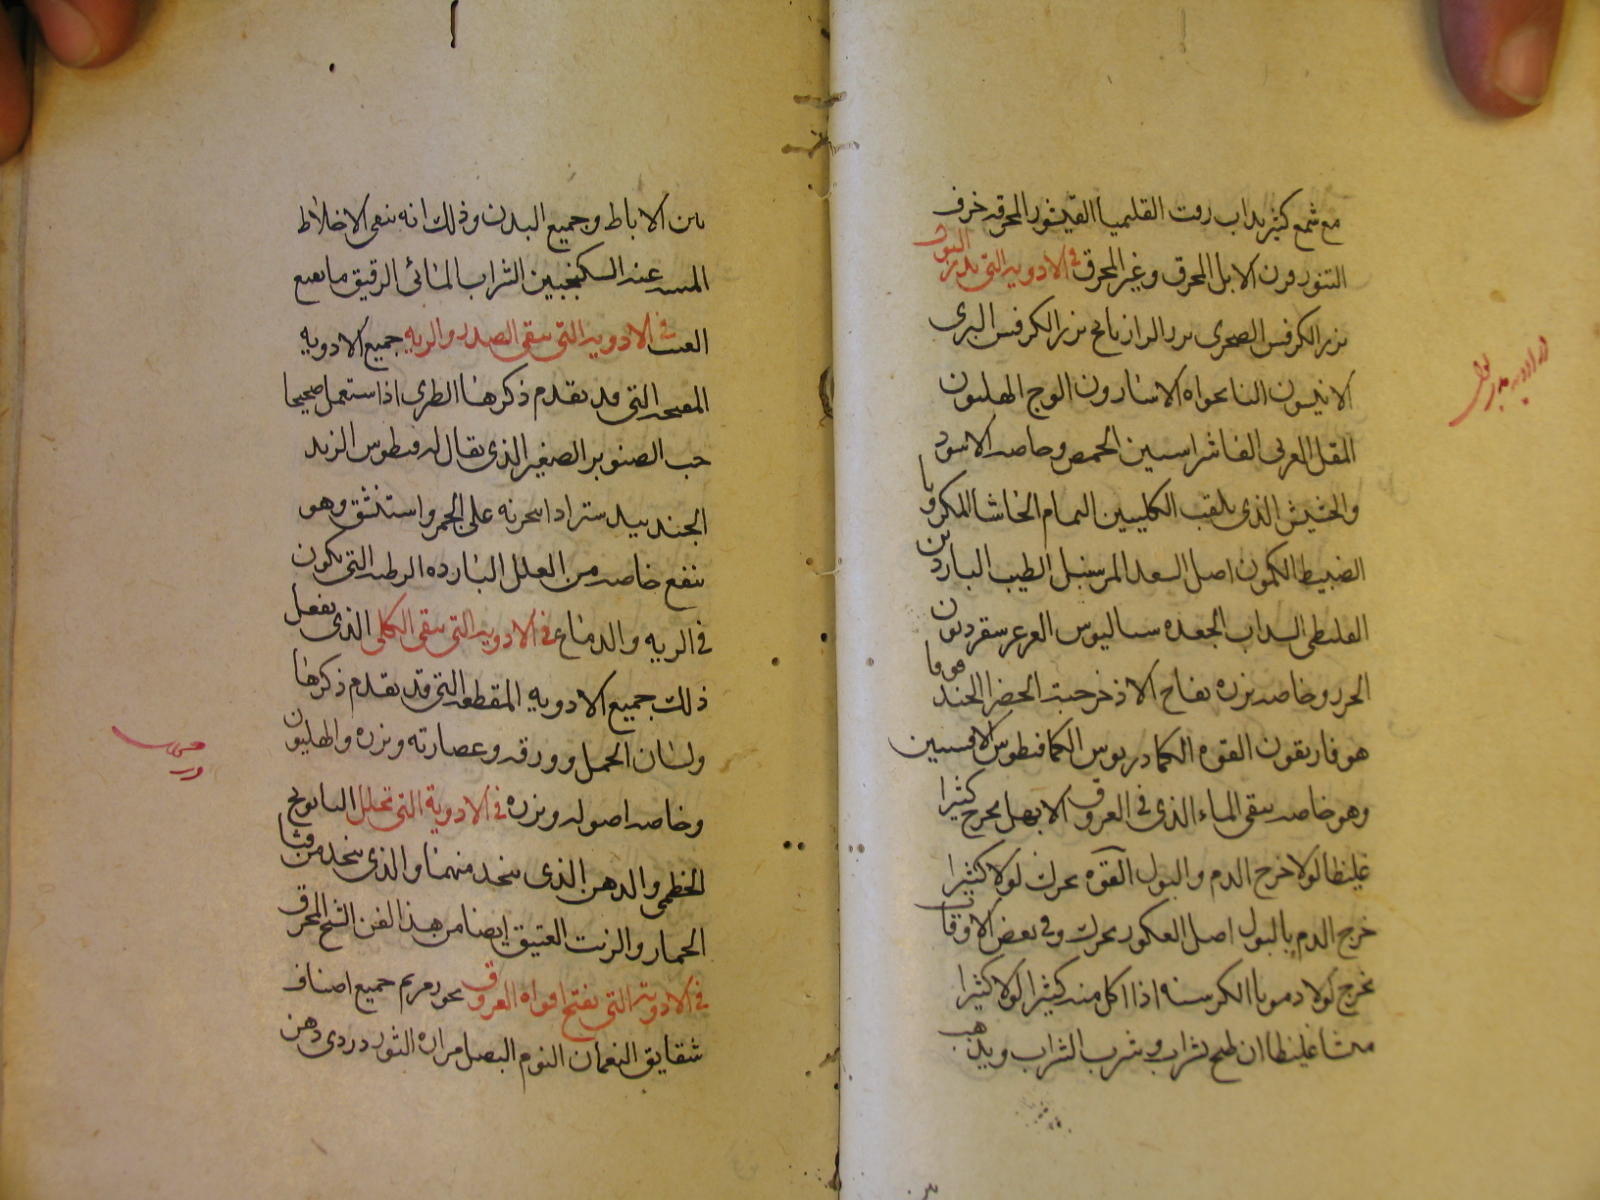 مع شمع كثير يداب روت القليميا القيشور المحرقه خرف
التنور قرن الابل المحرق وغير المحرق في الادويه التى تدر البول
بزر الكرفس الصخرى بزر الرازيانج بزر الكرفس البرى
الانيسون النانخواه الاسارون الوج الهليون
المقل العربى الفاشرا سسين الحمص وخاصه الاسود
والحشيش الذى يلقب الكلبين النمام الحاشا الكرويا
الكمون اصل السعد المر سنبل الطيب الناردين
السداب الجعده سساليوس العرعر سقرديون
الحرد وخاصه بزره فقاح الاذخر حبة الخضرا الجند هوفا
هوفاريقون الفوه الكمادريوس الكمافيطوس الافسنتين
وهو خاصه ينقى الماء الذى فى العروق الابهل يخرج كثيرا
غليظا لولا خرج الدم والبول الفوه يحرك لولا كثيرا
خرج الدم بالبول اصل العكور يحرك وفى بعض الاوقات
يخرج لولا دمويا الكرسنه اذا اكل منه كثيرا لولا كثيرا
غليظا ان طبخ بشراب وشرب الشراب ويذهب
الاباط وجميع البدن وذلك انه ينقى الاخلاط
عند السكنجبين الشراب المائى الرقيق ما
العنب فى الادويه التى تنقى الصدر والريه جميع الادويه
التى قد تقدم ذكرها الطرى اذا استعمل صحيحا
حب الصنوبر الصغير الذى يقال له الزبد
الجندبيدستر اذا بخر به على الجمر واستنشق وهو
ينفع خاصه من العلل البارده الرطبه التى تكون
فى الريه والدماغ فى الادويه التى تنقى الكلى الذى يفعل
ذلك جميع الادويه المقطعه التى قد تقدم ذكرها
ولسان الحمل وورقه وعصارته وبزره والهليون
وخاصه اصوله وبزره فى الادوية التى تحلل البابونج
الخطمى والدهن الذى يتخذ منهما والذى يتخذ من قثا
الحمار والزيت العتيق ايضا من هذا الفن الشيح المحرق
فى الادوية التى تفتح افواه العروق بخور مريم جميع اصناف
شقايق النعمان الثوم البصل مراره الثور دردى دهن